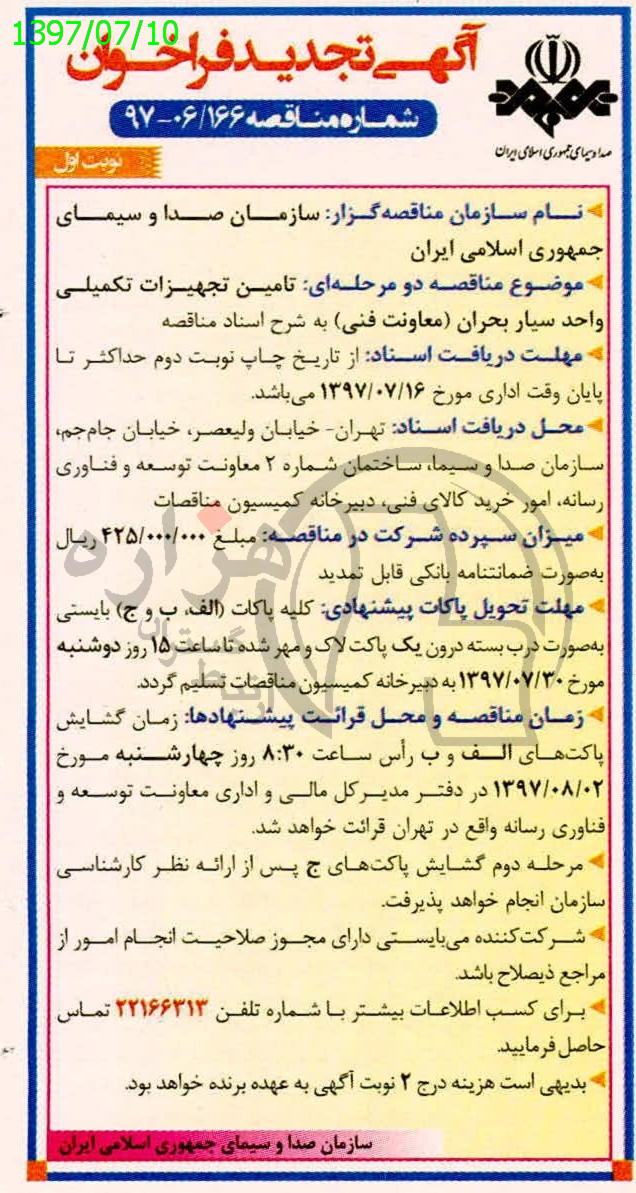 1397/07/10
آگهی تجدید فراخوان
شماره مناقصه ۹۷-۰۶/۱۶۶
صدا و سیمای جمهوری اسلامی ایران
نوبت اول
نام سازمان مناقصه‌گزار: سازمان صدا و سیمای
جمهوری اسلامی ایران
موضوع مناقصه دو مرحله‌ای: تامین تجهیزات تکمیلی
واحد سیار بحران (معاونت فنی) به شرح اسناد مناقصه
مهلت دریافت اسناد: از تاریخ چاپ نوبت دوم حداکثر تا
پایان وقت اداری مورخ ۱۳۹۷/۰۷/۱۶ می‌باشد.
محل دریافت اسناد: تهران- خیابان ولیعصر، خیابان جام‌جم،
سازمان صدا و سیما، ساختمان شماره ۲ معاونت توسعه و فناوری
رسانه، امور خرید کالای فنی، دبیرخانه کمیسیون مناقصات
میزان سپرده شرکت در مناقصه: مبلغ ۴۲۵/۰۰۰/۰۰۰ ریال
به‌صورت ضمانتنامه بانکی قابل تمدید
مهلت تحویل پاکات پیشنهادی: کلیه پاکات (الف، ب و ج) بایستی
به‌صورت درب بسته درون یک پاکت لاک و مهر شده تا ساعت ۱۵ روز دوشنبه
مورخ ۱۳۹۷/۰۷/۳۰ به دبیرخانه کمیسیون مناقصات تسلیم گردد.
زمان مناقصه و محل قرائت پیشنهادها: زمان گشایش
پاکت‌های الف و ب رأس ساعت ۸:۳۰ روز چهارشنبه مورخ
۱۳۹۷/۰۸/۰۲ در دفتر مدیرکل مالی و اداری معاونت توسعه و
فناوری رسانه واقع در تهران قرائت خواهد شد.
مرحله دوم گشایش پاکت‌های ج پس از ارائه نظر کارشناسی
سازمان انجام خواهد پذیرفت.
شرکت‌کننده می‌بایستی دارای مجوز صلاحیت انجام امور از
مراجع ذیصلاح باشد.
برای کسب اطلاعات بیشتر با شماره تلفن ۲۲۱۶۶۳۱۳ تماس
حاصل فرمایید.
بدیهی است هزینه درج ۲ نوبت آگهی به عهده برنده خواهد بود.
سازمان صدا و سیمای جمهوری اسلامی ایران
هزاره